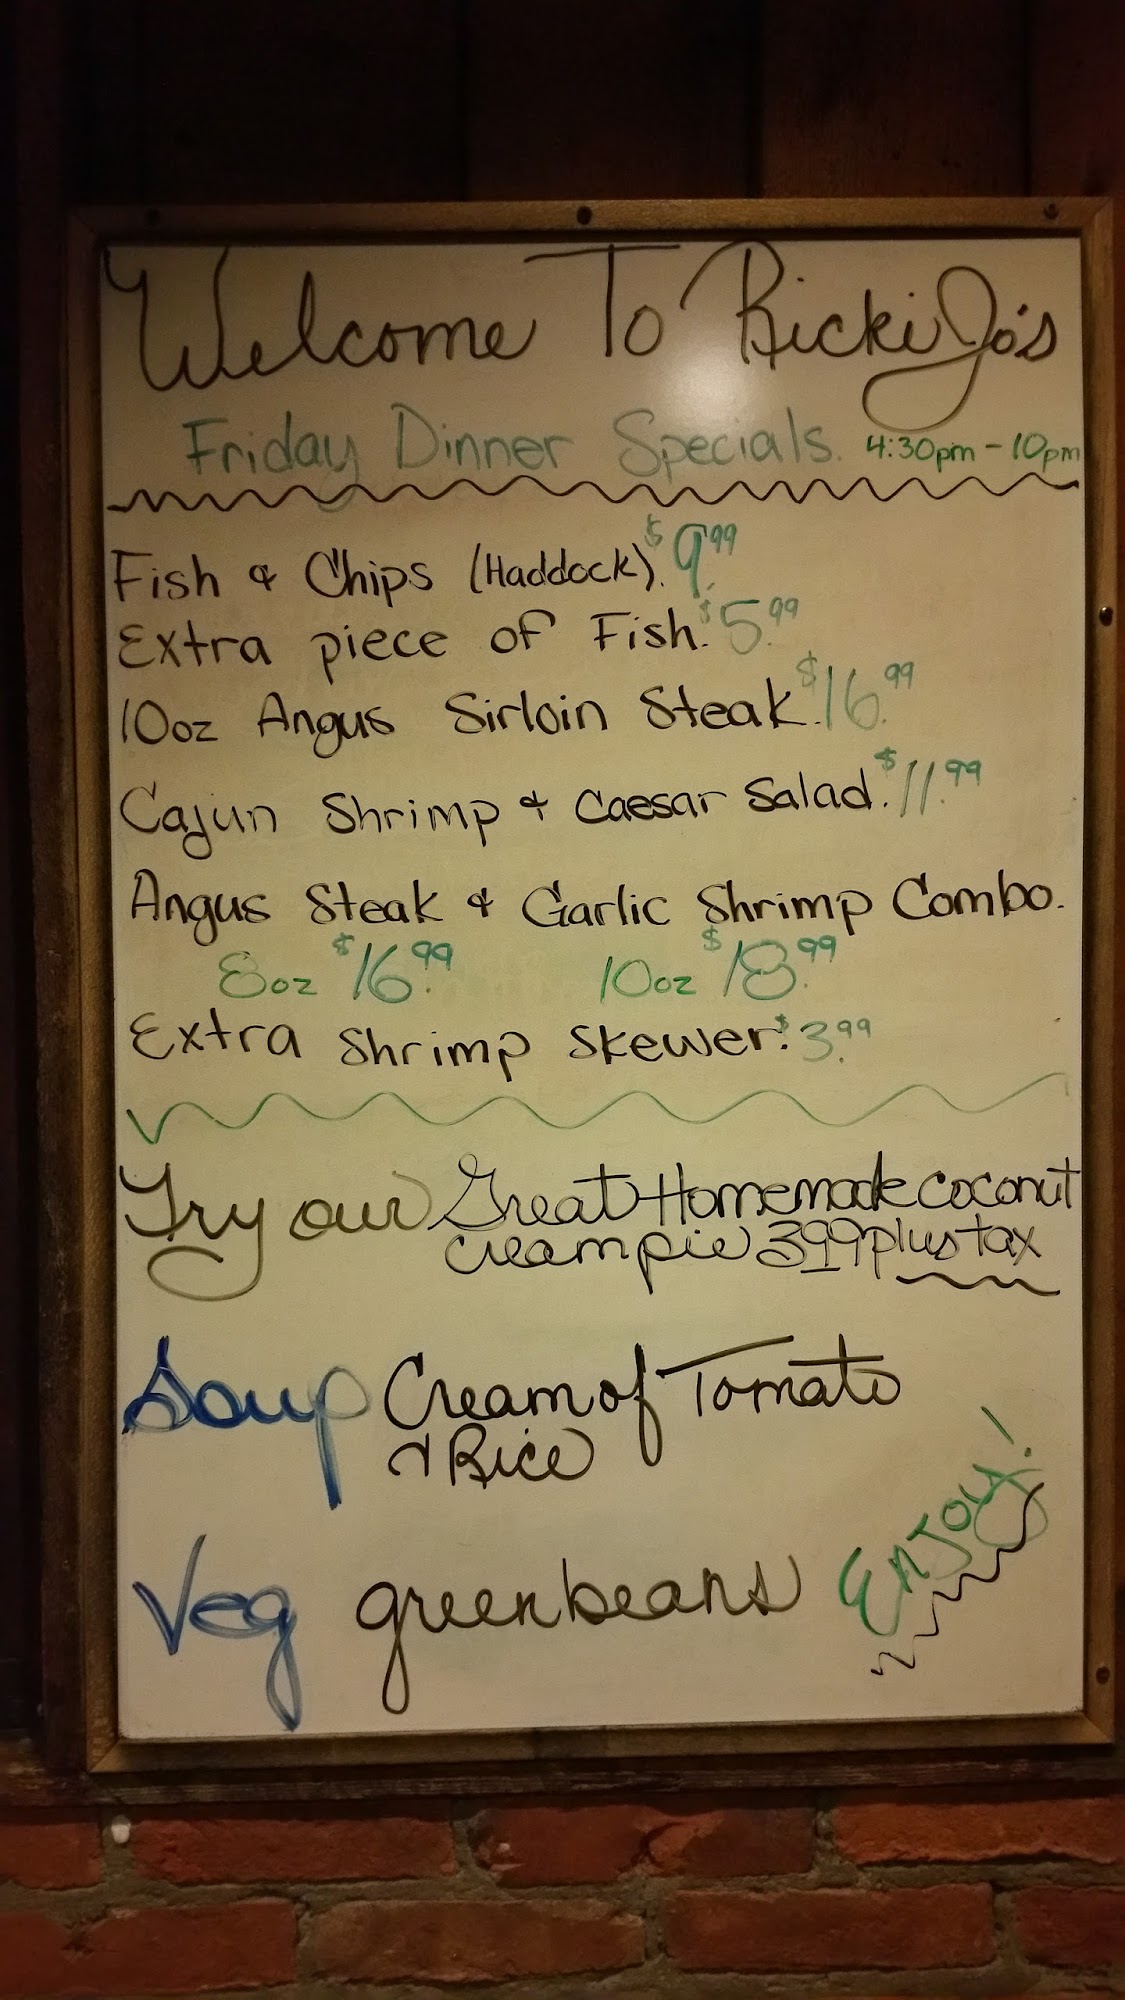 Welcome To Ricki Jo's
Friday Dinner Specials. 4:30pm - 10pm
Fish & Chips (Haddock). $9.99
Extra piece of Fish. $5.99
10oz Angus Sirloin Steak. $16.99
Cajun Shrimp & Caesar Salad. $11.99
Angus Steak & Garlic Shrimp Combo.
8oz $16.99 10oz $18.99
Extra Shrimp Skewer. $3.99
Try our Great Homemade coconut
creampie 399 plus tax
Soup Cream of Tomato
& Rice
Veg greenbeans
EnJoy!